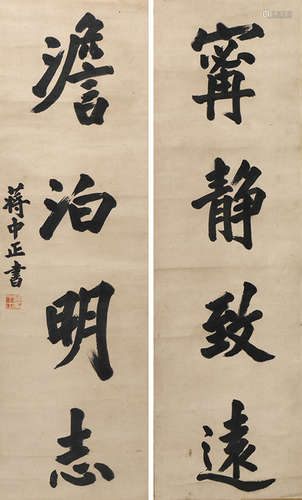 寗靜致遠
澹泊明志
蔣中正書